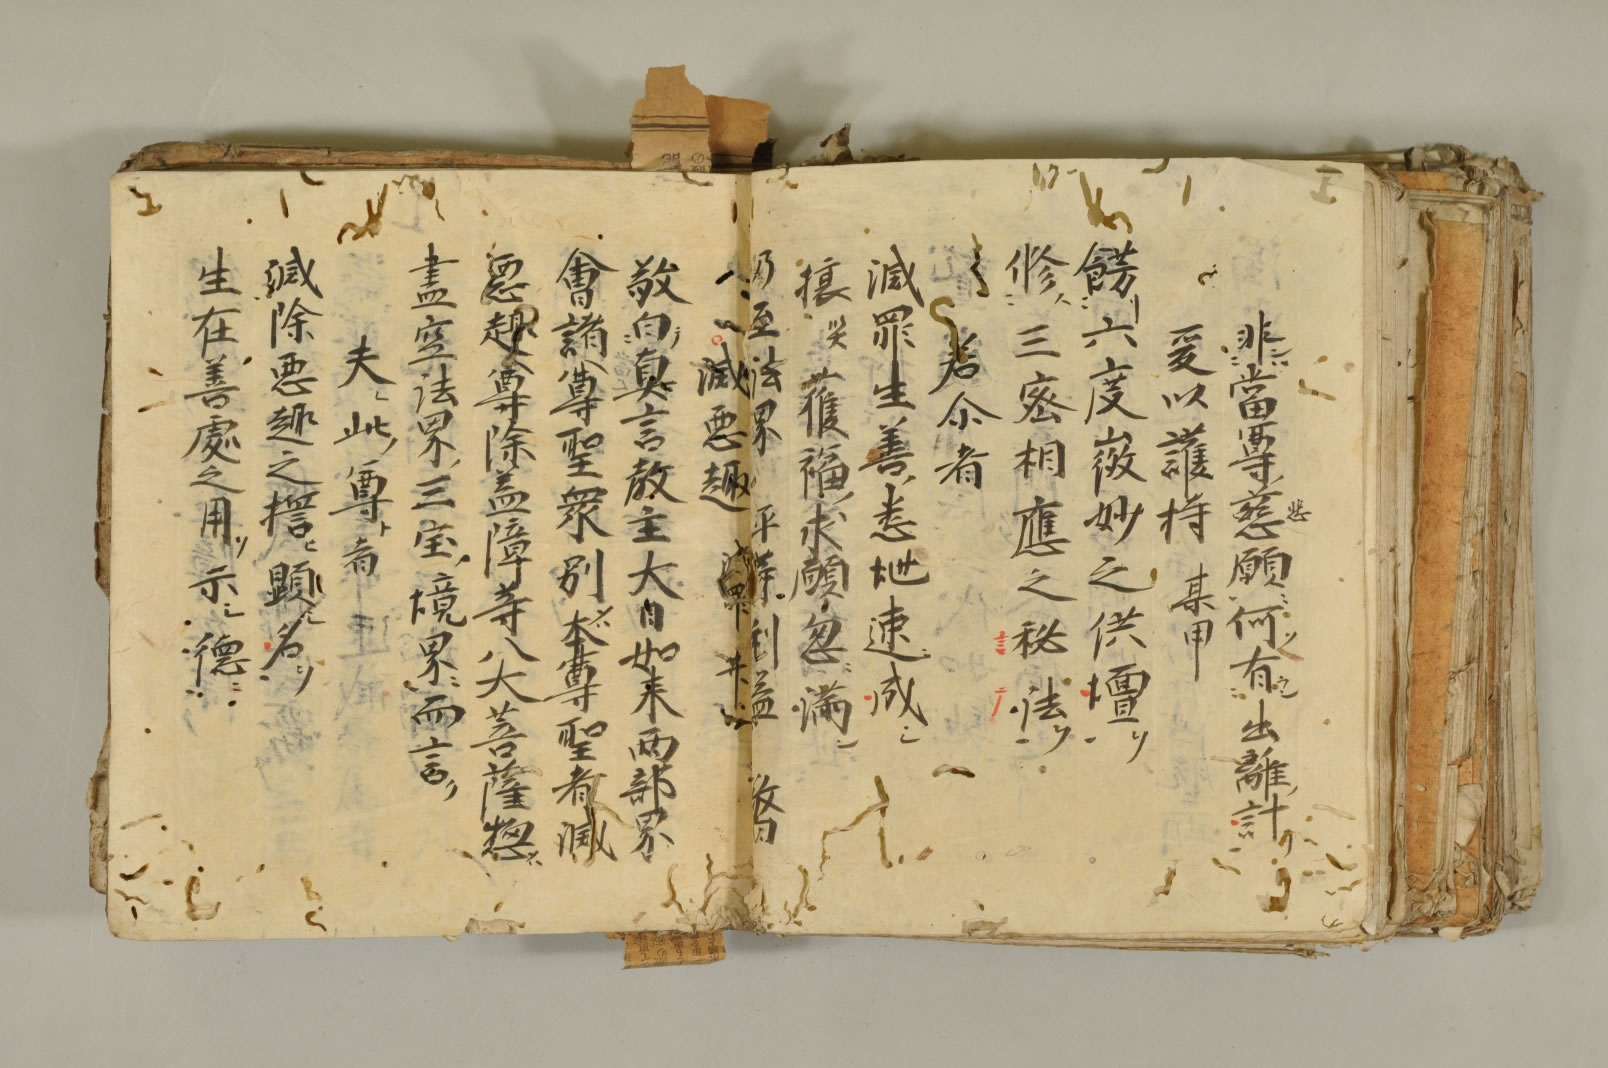 非當尊慈悲願何有出離計
爰以護持某甲
餝六度微妙之供壇
修三密相應之秘法
若尒者
滅罪生善悉地速成
攘災獲福求願忽満
乃至法界平等利益敬白
滅悪趣
敬白真言教主大日如来両部界
會諸尊聖衆別本尊聖者滅
悪趣尊除盖障等八大菩薩惣
盡空法界三宝境界而言
夫此尊者
滅除悪趣之誓顕名
生在善處之用示德